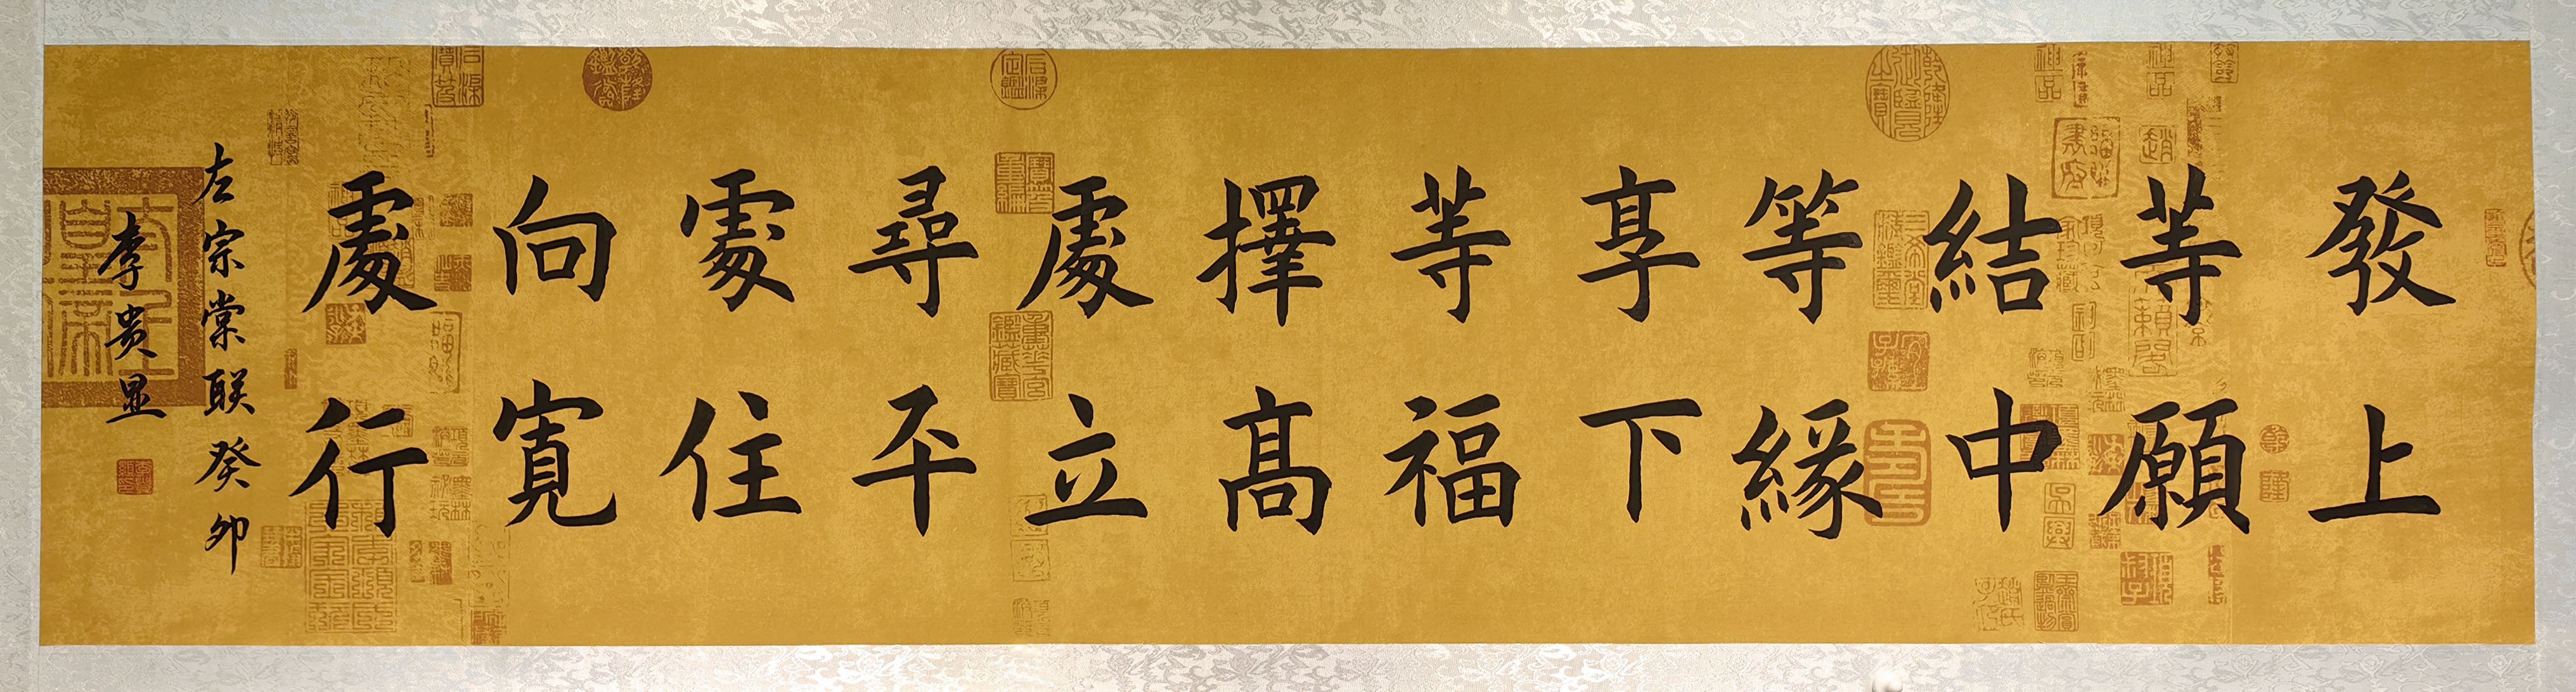 發上
等願
結中
等緣
享下
等福
擇高
處立
尋平
處住
向寬
處行
左宗棠联癸卯
李贵显